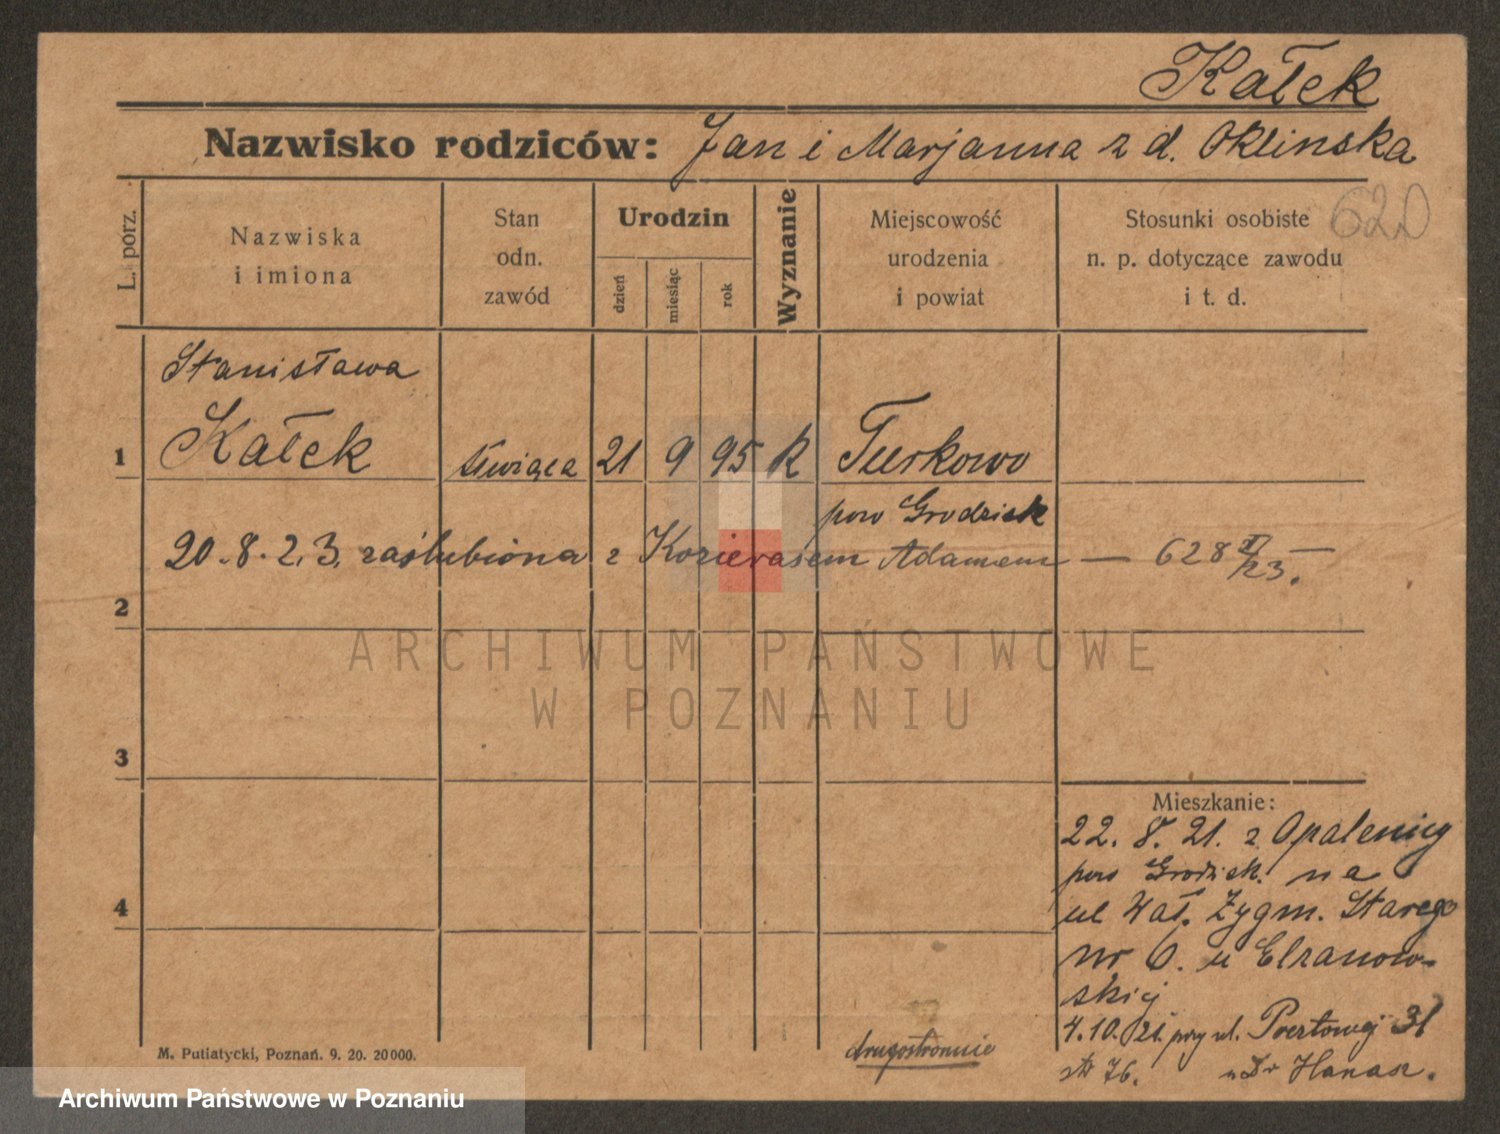 Kałek
Nazwisko rodziców: Jan i Marjanna z d. Oklinska
L. porz.
Nazwiska
i imiona
Stan
odn.
zawód
Urodzin
dzień
miesiąc
rok
Wyznanie
Miejscowość
urodzenia
i powiat
Stosunki osobiste
n. p. dotyczące zawodu
i t. d.
620
Stanisława
1 Kałek służąca 21 9 95 k Turkowo
pow Grodzisk
20.8.23. zaślubiona z Adamem — 628 /23. —
2
3
4
ARCHIWUM PAŃSTWOWE
W POZNANIU
Mieszkanie:
22. 8. 21. z Opalenicy
pow Grodzisk. na
ul Wał. Zygm. Starego
nr 6. u Elzanow-
skiej
4.10.21. przy ul. 31
76. u Dr Hanasz.
drugostronnie
M. Putiatycki, Poznań. 9. 20. 20000.
Archiwum Państwowe w Poznaniu